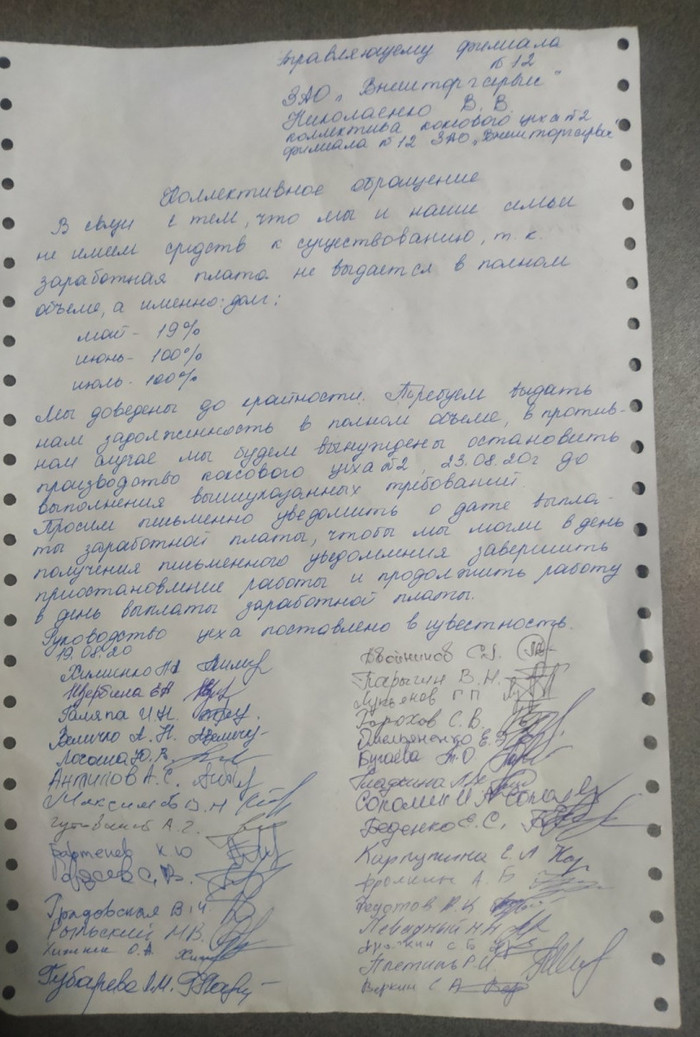 Управляющему филиала
№12
ЗАО „Внешторгсервис"
Николаенко В. В.
коллектива коксового цеха №2
филиала №12 ЗАО „Внешторгсервис"
Коллективное обращение
В связи с тем, что мы и наши семьи
не имеем средств к существованию, т. к.
заработная плата не выдается в полном
объеме, а именно: долг:
май - 19%
июнь - 100%
июль - 100%
Мы доведены до крайности. Требуем выдать
нам задолженность в полном объеме, в против-
ном случае мы будем вынуждены остановить
производство коксового цеха №2, 23.08.20г до
выполнения вышеуказанных требований.
Просим письменно уведомить о дате выпла-
ты заработной платы, чтобы мы могли в день
получения письменного уведомления завершить
приостановление работы и продолжить работу
в день выплаты заработной платы.
Руководство цеха поставлено в известность.
19.08.20
Щербина
Галяпа И.Н.
Величко А. Н.
Антипов А. С.
Максимов О. Н
Бартенев К. Ю
Грядовская В. И.
Рыльский Н.В.
Губарева
Двойников С.А.
Парыгин В. Н.
Лукьянов Г П
Горохов С. В.
Омельяненко Е. Э
Бугаева
Беденко Е. С.
Карпухина Е. Л
Фролкин А. Б
Федотов
Левадный Н Н